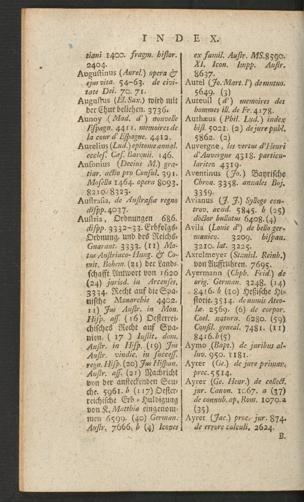 INDEX.
tiani 1400. fragm. histor.
2404.
Augustinus (Aurel.) opera &
ejus vita. 54-63. de civi-
tate Dei. 70. 71.
Augustus (El. Sax.) wird mit
der Chur belehen. 3736.
Aunoy (Mad. d') nouvelle
Espagn. 4411. memoires de
la cour d' Espagne. 4412.
Aurelius (Lud.) epitome annal.
eccles. Caes. Baronii. 146.
Ausonius (Decius M.) gra-
tiar. actio pro Consul. 391.
Mosella 1464. opera 8093.
8210. 8323.
Austrasia, de Austrasiae regno
dissp. 4037.
Austria, Ordnungen 686.
dissp. 3332-33. Erbfolgs
Ordnung, und des Reichs-
Guarant. 3333. (11) Mo-
tus Austriaco-Hung. & Co-
mit. Bohem. (21) der Land-
schafft Antwort von 1620
(24) jurisd. in Arcensia,
3334. Recht auf die Spa-
nische Monarchie 4402.
11) Jus Austr. in Mon.
Hisp. ass. (16) Oesterrei-
chisches Recht auf Spa-
nien. (17) Justit. dom.
Austr. in Hisp. (19) Jus
Austr. vindic. in success.
regn. Hisp. (20) Jus Hispan.
Austr. ass. (21) Nachricht
von der ansteckenden Seu-
che. 5961. b (117) Oester-
reichische Erb-Huldigung
von K. Matthia eingenom-
men 6599. (40) German.
Austr. 7666. b (4) Icones
ex famil. Austr. MS. 8590.
XI. Icon. Impp. Austr.
8637.
Autel (Jo. Mart. l') de mutuo.
5649. (3)
Auteuil (d') memoires des
hommes ill. de Fr. 4178.
Authaeus (Phil. Lud.) index
bist. 5021. (2) de jure publ.
5862. (2)
Auvergne, les vertus d'Henri
d'Auvergne 4318. particu-
laritez 4319.
Aventinus (Jo.) Bayrische
Chron. 3358. annales Boj.
3359.
Avianus (J. J.) Sylloge con-
trov. acad. 5845. b (25)
dictor bullatus 6408. (4)
Avila (Lonis d') de bello ger-
manico. 3209. hispan.
3210. lat. 3225.
Axtelmeyer (Stanisl. Reinh.)
von Aufführen. 7695.
Ayermann (Chph. Frid.) de
orig. German. 3248. (14)
8416. b (20) Hessische Hi-
storie. 3514. de nunis Atro-
lae. 2569. (6) de corpor.
Coel. natura. 6250. (59)
Consil. geneal. 7481. (11)
8416. b (5)
Aymo (Bapt.) de juribus al-
luv. 950. 1181.
Ayrer (Ge.) de jure primar.
proc. 5514.
Ayrer (Ge. Henr.) de collect.
jur. Canon. 1167. a (37)
de connub. ap. Rom. 1070. a
(35)
Ayrer (Jac.) proc. jur. 874.
de errore calculi, 2624.
B.